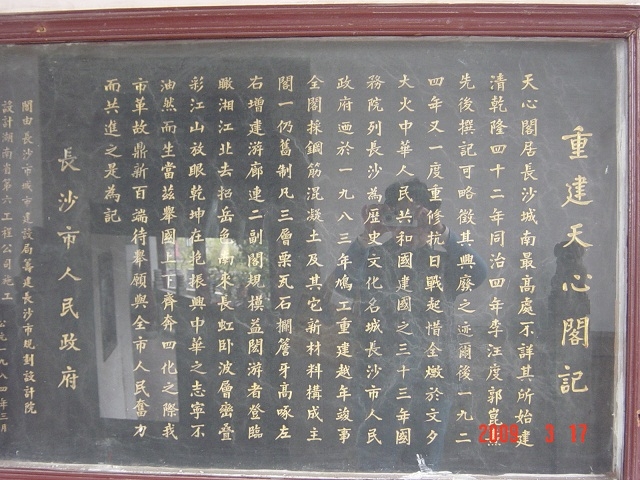 重建天心閣記
天心閣居長沙城南最高處不詳其所始建
清乾隆四十二年同治四年李汪度郭嵩燾
先後撰記可略徵其興廢之迹爾後一九二
四年又一度重修抗日戰起惜全燬於文夕
大火中華人民共和國建國之三十三年國
務院列長沙為歷史文化名城長沙市人民
政府迺於一九八三年鳩工重建越年竣事
全閣採鋼筋混凝土及其它新材料構成主
閣一仍舊制凡三層栗瓦石欄簷牙高啄左
右增建游廊連二副閣規模益閎游者登臨
瞰湘江北去招岳色南來長虹卧波層巒疊
彩江山放眼乾坤在抱振興中華之志寧不
油然而生當茲舉國上下齊奔四化之際我
市革故鼎新百端待舉願與全市人民奮力
而共進之是為記
長沙市人民政府
閣由長沙市城市建設局籌建長沙市規劃設計院
設計湖南省第六工程公司施工
公元一九八四年三月
2009 3 17